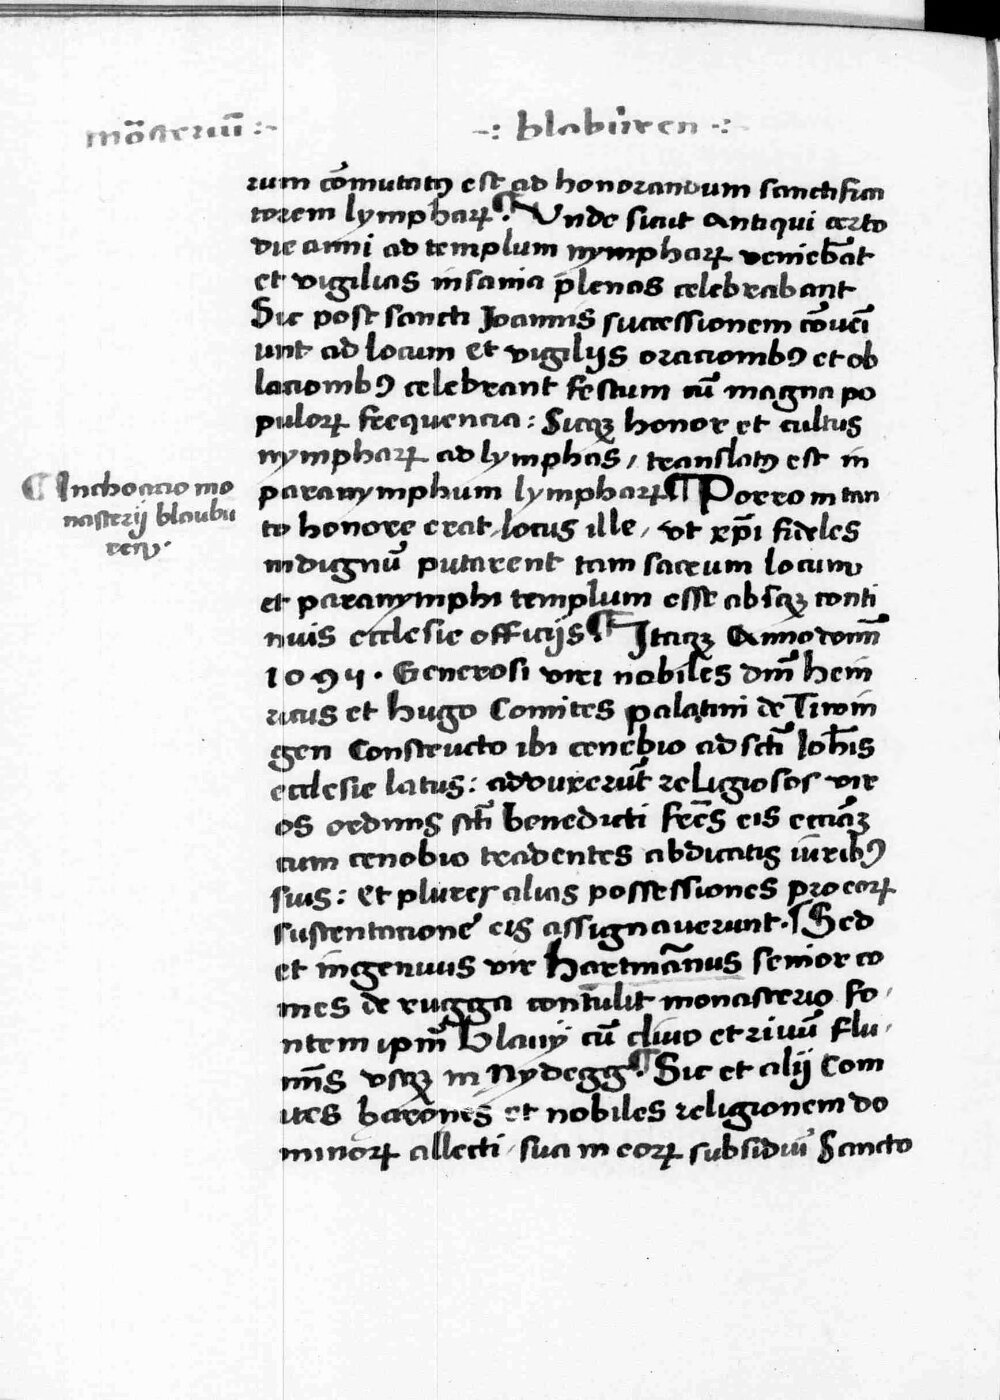 mo̅steriu̅ :~ -: blabu̅ren -:-
rum co̅mutatꝰ est ad honorandum sanctifica
torem lympharꝝ. ¶ Unde sicut Antiqui certo
die anni ad templum nympharꝝ venieba̅t
et vigilias insania plenas celebrabant
Sic post sancti Joannis successionem co̅ueni̅
unt ad locum et vigilijs oracionibꝰ et ob
lacionibꝰ celebrant festum cu̅ magna po
pulorꝝ frequencia: Sicqꝫ honor et cultus
nympharꝝ ad lymphas, translatꝰ est in
paranymphum lympharꝝ ¶ Porro in tan
to honore erat, locus ille, vt xp̅i fideles
indignu̅ putarent tam sacrum locum
et paranymphi templum esse absqꝫ conti
nuis ecclesie officijs. ¶ Itaqꝫ Anno domi̅
¶ Inchoacio mo
nasterij blaubu
ren.
1091. Generosi viri nobiles dm̅ hein
ricus et hugo Comites palatini de Tiwin
gen Constructo ibi cenobio ad scti̅ Joh̅is
ecclesie latus: adduxeru̅t religiosos vir
os ordinis scti̅ benedicti fr̅es eis eccia̅ꝫ
cum cenobio tradentes abdicatis iuribꝰ
suis: et plures alias possessiones pro eorꝝ
sustentacione̅ eis assignauerunt. ¶ Sed
et ingenuus vir hartma̅nus senior co
mes de rugga contulit monasterio fo,
ntem ipm̅ Blauij cu̅ cliuo et riuu̅ flu,
mi̅s vsqꝫ in Nydegg. ¶ Sic et alij Com
ites barones et nobiles religionem do
minorꝝ allecti, sua in eorꝝ subsidiu̅ Sancto